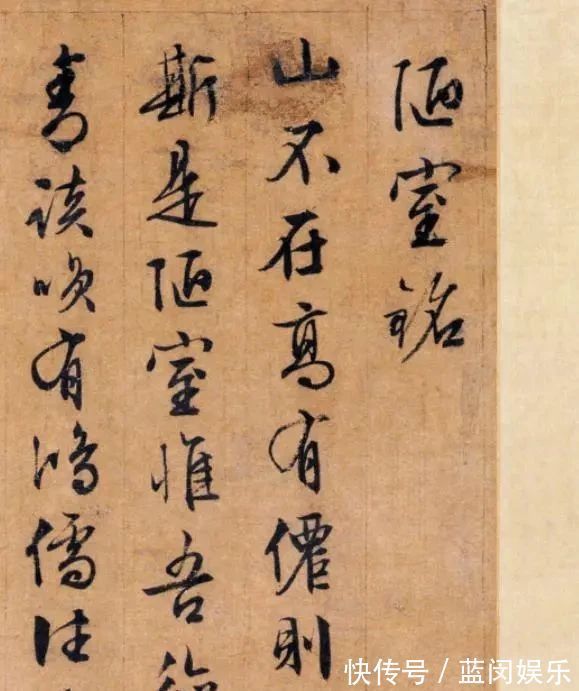 陋室銘
山不在高有僊則
斯是陋室惟吾德
青談咲有鴻儒往
快传号/蓝闵娱乐